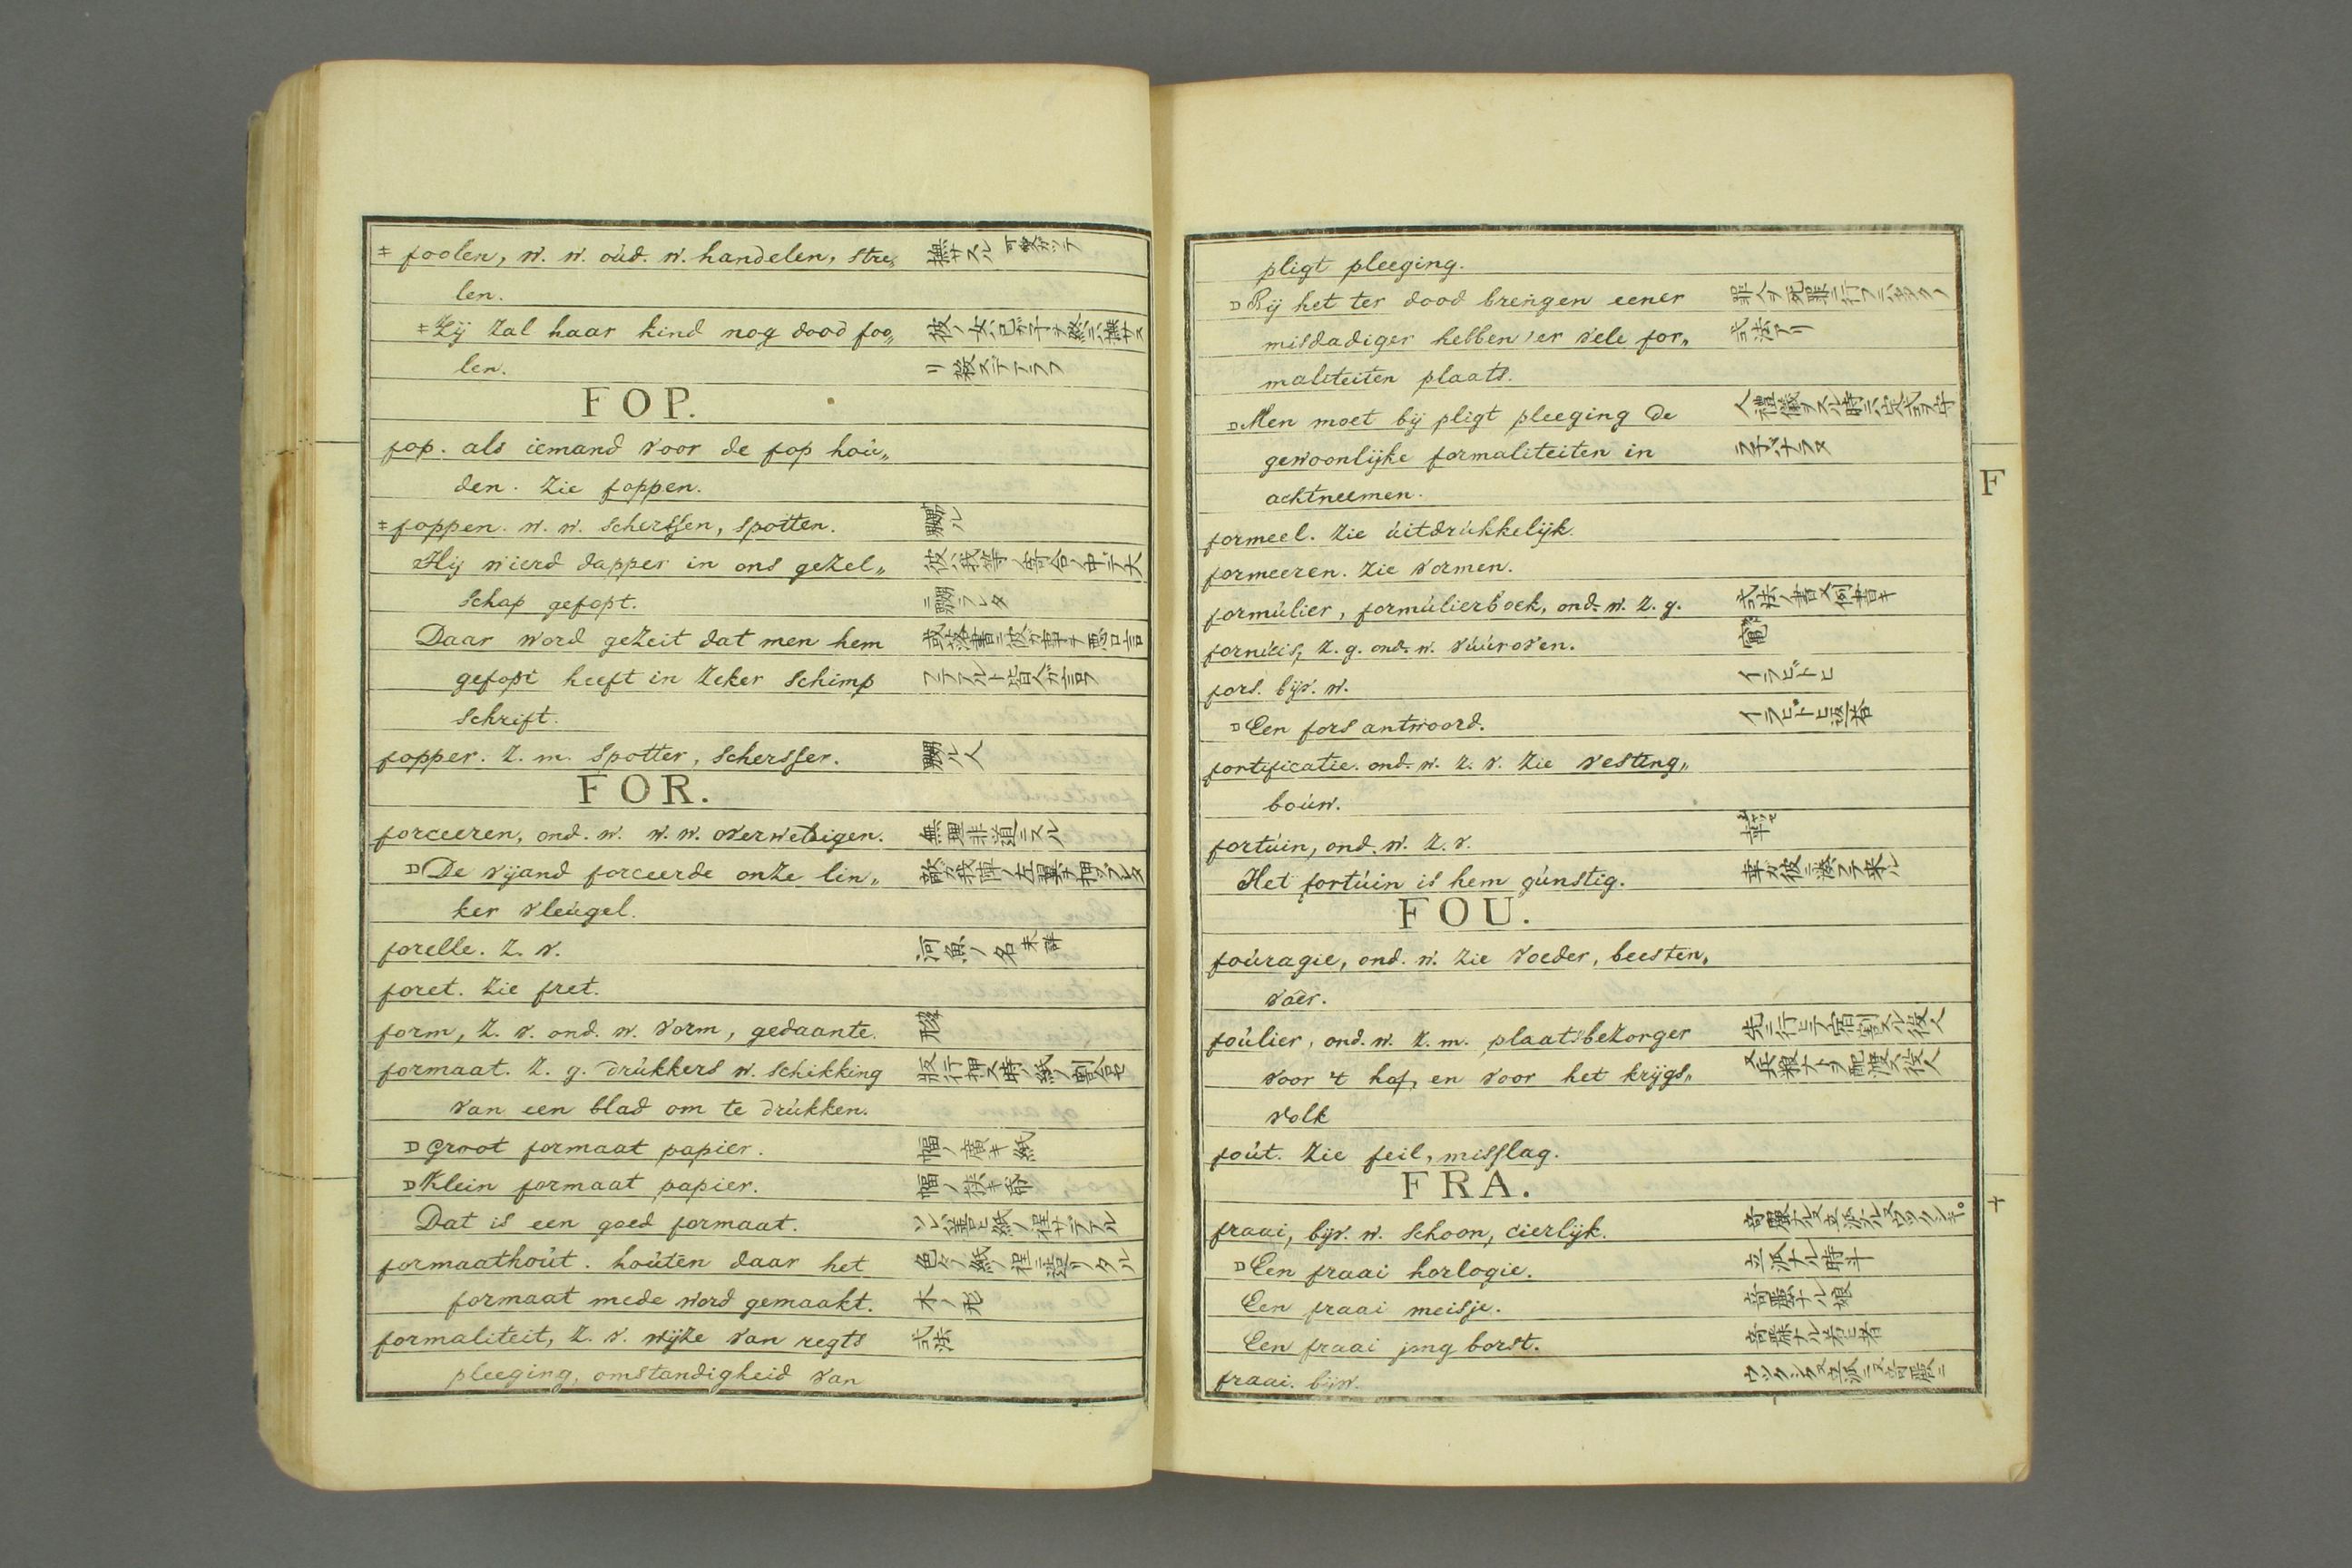 ‡ foolen, w. w. oùd. w. handelen, stre„ 撫サスル 可愛ガッテ
len.
‡ Zij zal haar kind nog dood foo„ 彼ノ女ハ己ガ子ヲ
len. リ殺スデアラフ
FOP.
fop. als iemand voor de fop hoù„
den. Zie foppen.
‡ foppen. w. w. scherssen, spotten. 嬲ル
Hij wierd dapper in ons gezel„ 彼ハ我等ノ寄合ノ中デ大
schap gefopt. ニ嬲ラレタ
Daar word gezeit dat men hem 或落書ニ彼ガ事ヲ悪口言
gefopt heeft in zeker schimp フテアルト皆人ガ言フ
schrift.
fopper. z. m. spotter, schersser. 嬲ル人
FOR.
forceeren, ond. w. w. w. overweldigen. 無理非道ニスル
D De vijand forceerde onze lin„ 敵ガ我陣ノ左翼ヲ
ker vleùgel.
forelle. z. v. 河魚ノ名 未詳
foret. Zie fret.
form, z. v. ond. w. vorm, gedaante. 形
formaat. z. g. drùkkers w. schikking 版行押ス時ノ紙ノ割合セ
van een blad om te drùkken.
D Groot formaat papier. 幅ノ廣キ紙
D Klein formaat papier. 幅ノ狭キ帋
Dat is een goed formaat. ソレハ善ヒ紙ノ程サデアル
formaathoùt. hoùten daar het 色々ノ紙ノ程ニ造リタル
formaat mede word gemaakt. 木ノ形
formaliteit, z. v. wijze van regts 式法
pleeging, omstandigheid van
pligt pleeging.
D Bij het ter dood brengen eener 罪人ヲ死罪ニ行フニハ
misdadiger hebben 'er vele for„ 式法アリ
maliteiten plaats.
D Men moet bij pligt pleeging de 人禮儀ヲスル時ニハ定式ヲ守
gewoonlijke formaliteiten in ラ子バナラヌ
achtneemen.
formeel. Zie ùitdrùkkelijk.
formeeren. Zie vormen.
formùlier, formùlierboek, ond. w. z. g. 式法ノ書又例書キ
fornùis, z. g. ond. w. vùùroven. 竈
fors. bijv. w. イラヒドヒ
D Een fors antwoord. イラヒドヒ返答
fortificatie. ond. w. z. v. Zie vesting„
boùw.
fortùin, ond. w. z. v. 幸
Het fortùin is hem gùnstig. 幸ガ彼ニ
FOU.
foùragie, ond. w. Zie voeder, beesten„
vaêr.
foùlier, ond. w. z. m. plaatsbezorger 先ニ行ヒテ宿割スル役人
voor 't hof, en voor het krijgs„ 又兵粮ナトヲ配渡ス役人
volk
foùt. Zie feil, misslag.
FRA.
fraai, bijv. w. schoon, cierlijk. 奇麗ナル又立派ナル又ウツクシキ。
D Een fraai horlogie. 立派ナル時斗
Een fraai meisje. 奇麗ナル娘
Een fraai jong borst. 奇麗ナル若ヒ者
fraai. bijw. ウツクシク又立派ニ又奇麗ニ
F